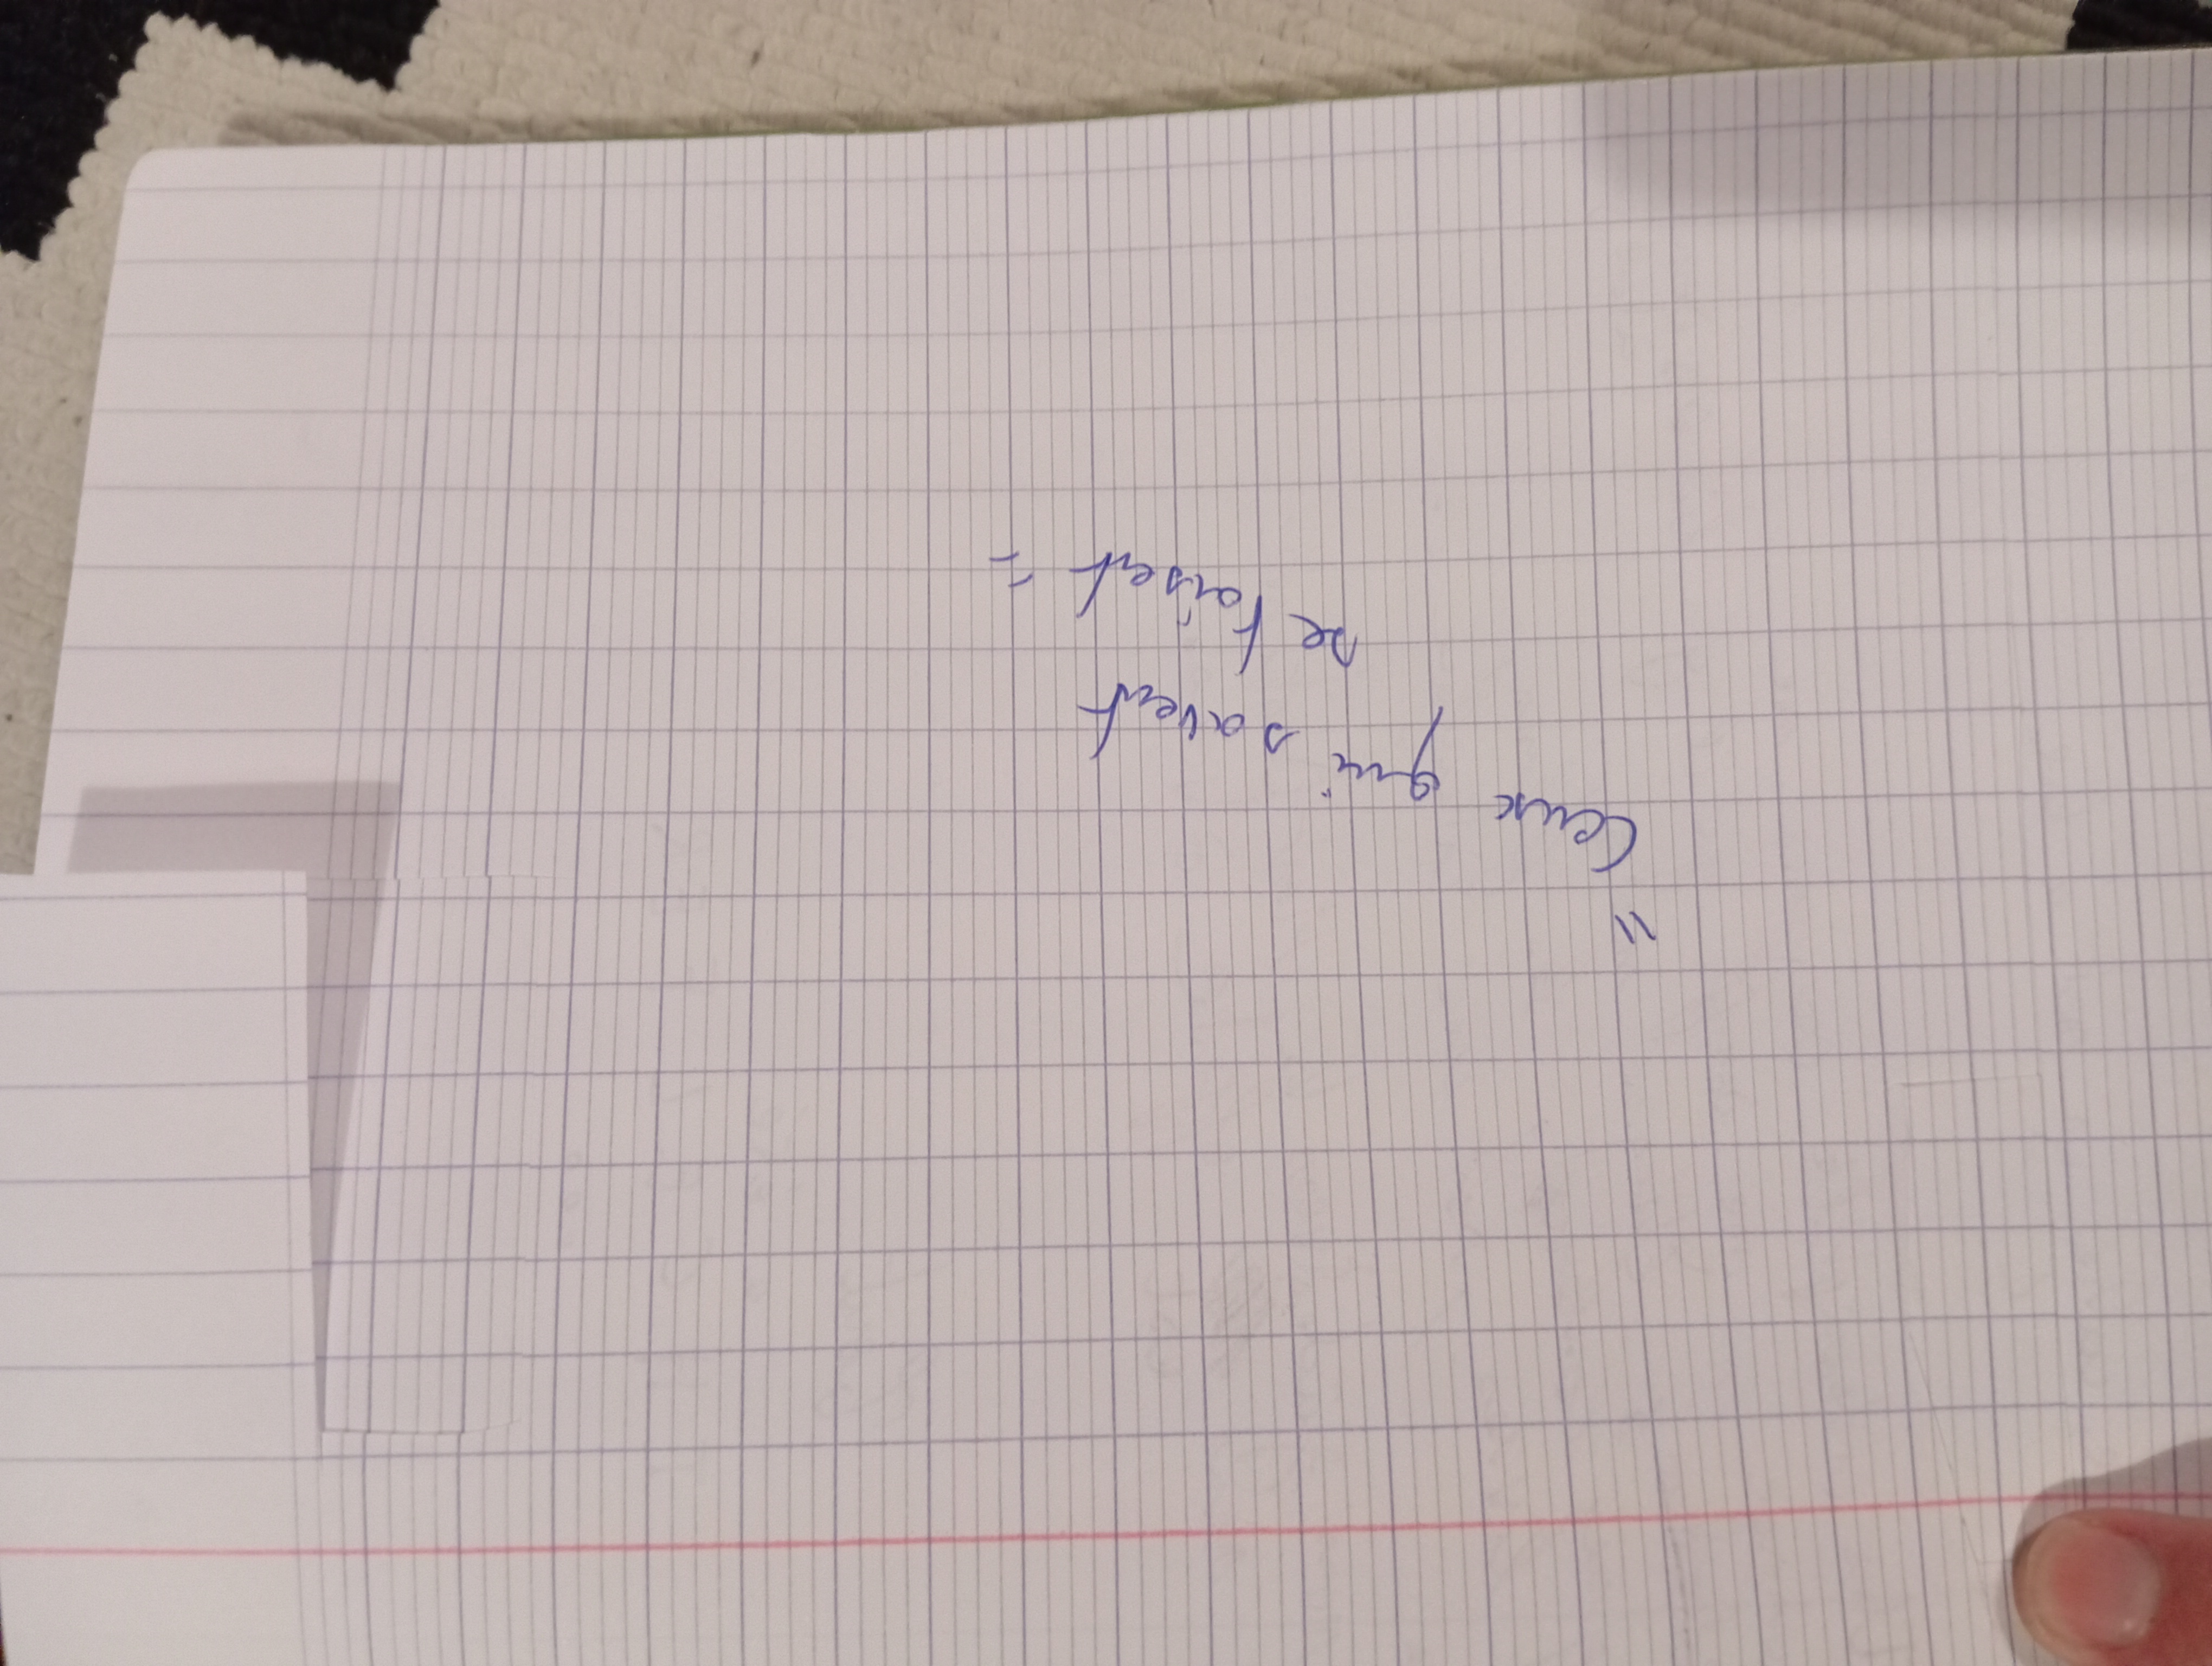 "
Ceux qui savent
se toisent "